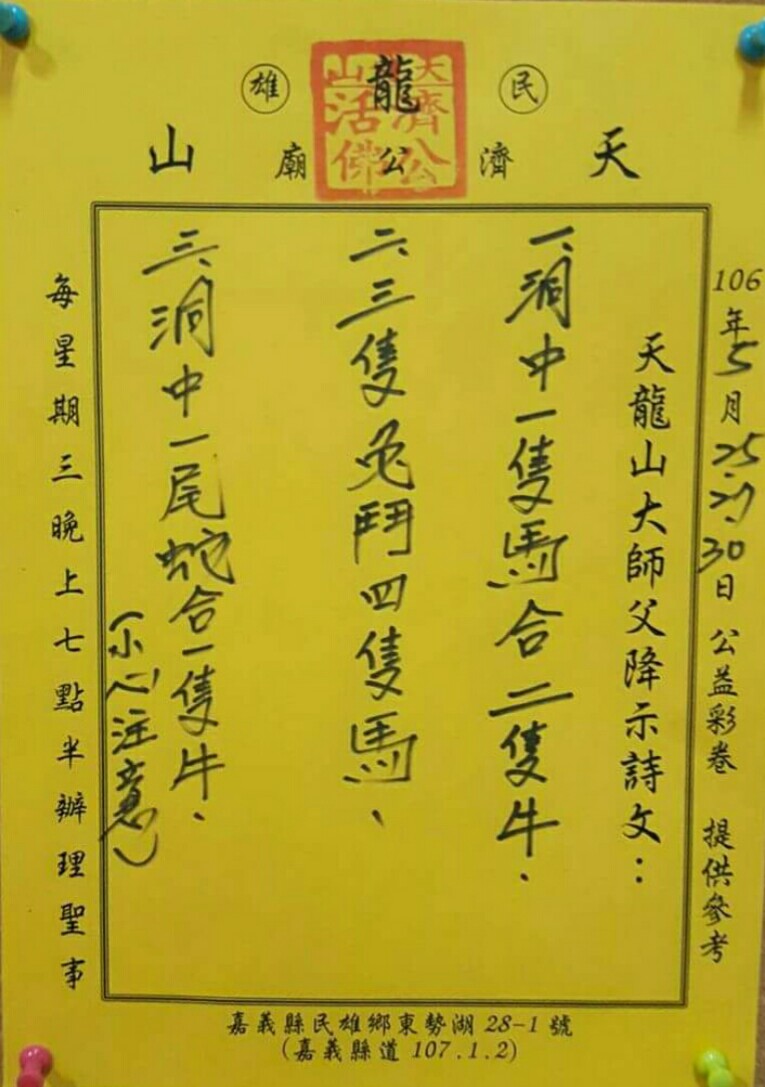 民雄
天龍山
濟公廟
天山濟公活佛
106年5月25.27.30日 公益彩卷 提供參考
天龍山大師父降示詩文：
一、洞中一隻馬合二隻牛、
二、三隻兔鬥四隻馬、
三、洞中一尾蛇合一隻牛、
(小心注意)
每星期三晚上七點半辦理聖事
嘉義縣民雄鄉東勢湖 28-1 號
(嘉義縣道 107.1.2)